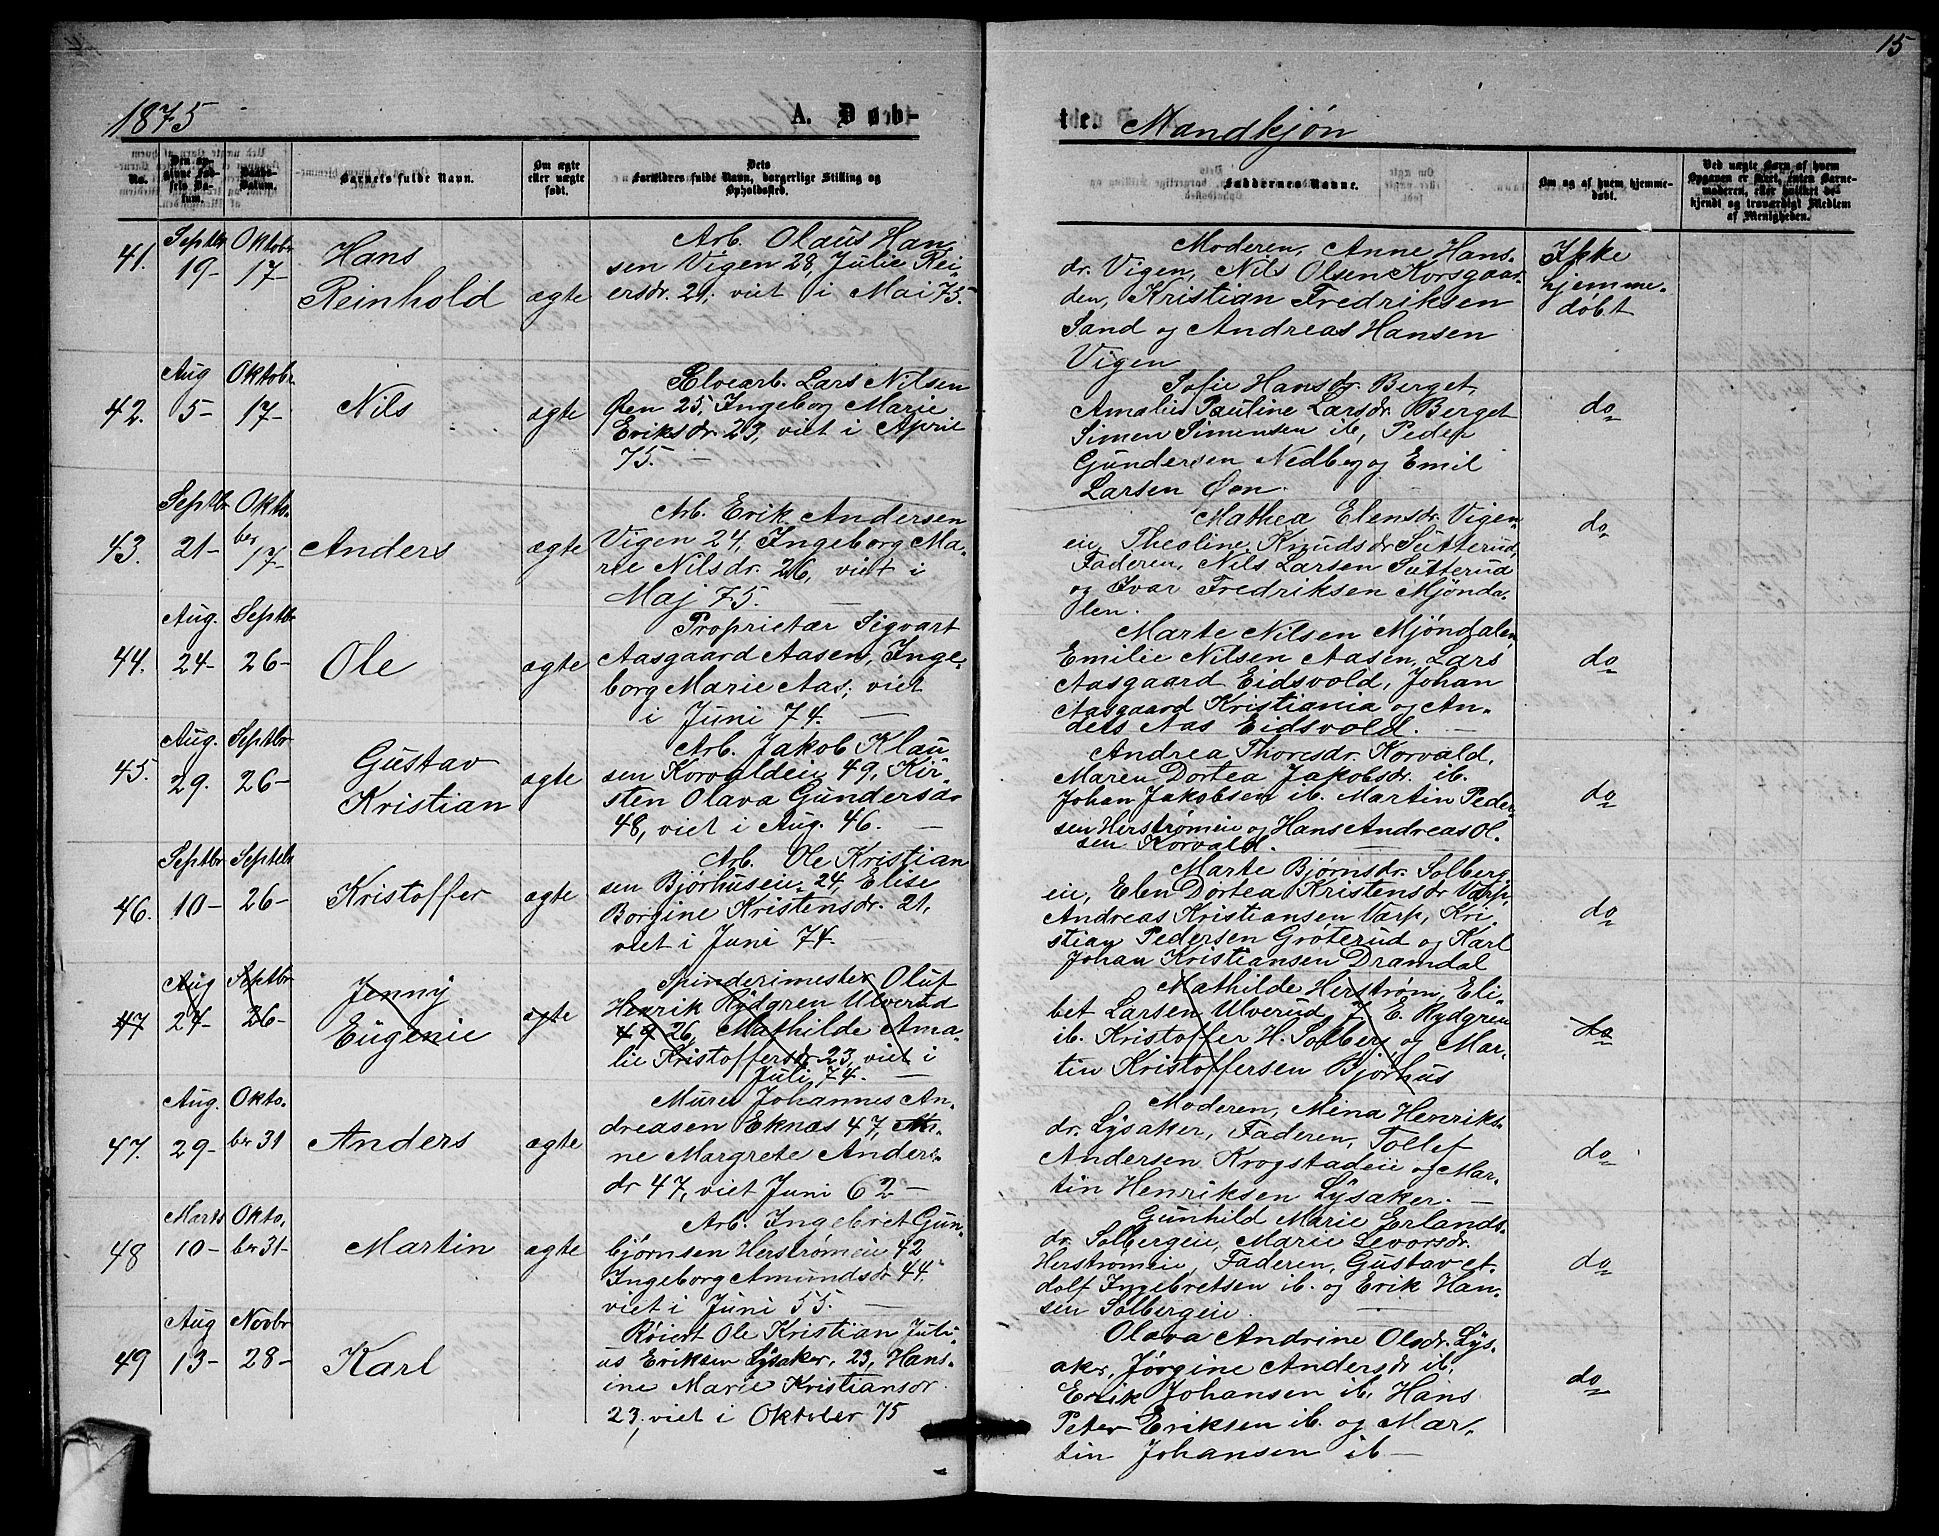 15
1875
A. Døb-
te. Mandkjøn
No.
Den op-
givne Fød-
sels Da-
tum.
Daabs-
Datum.
Barnets fulde Navn.
Om ægte
eller uægte
født.
Dets
Forældres fulde Navn, borgerlige Stilling og
Opholdssted.
Faddernes Navne.
Om og af hvem hjemme-
døbt.
Ved uægte Børn af hvem
Opgaven er skeet, enten Barne-
moderen, eller hvilket be-
kjendt og troværdigt Medlem
af Menigheden.
41.
Septbr
19-
Oktobr
17-
Hans
Reinhold
ægte
Arb. Olaus Han
sen Vigen 28, Julie Rei
ersdr. 21, viet i Mai 75.
Moderen, Anne Hans-
dr. Vigen, Nils Olsen Korsgaar-
den, Kristian Fredriksen
Sand og Andreas Hansen
Vigen
Ikke
hjemme-
døbt
42.
Aug
5-
Oktobr
17-
Nils
ægte
Elvearb. Lars Nilsen
Øen 25, Ingeborg Marie
Eriksdr. 23, viet i April
75. -
Sofie Hansdr. Berget,
Amalie Pauline Larsdr. Berget
Simen Simensen ib, Peder
Gundersen Nedbeg og Emil
Larsen Øen.
do
43.
Septbr
21-
Okto-
ber
17-
Anders
ægte
Arb. Erik Andersen
Vigen 24, Ingeborg Ma-
rie Nilsdr. 26, viet i
Maj 75. -
Mathea Elensdr. Vigen-
eie, Theoline Knudsdr Sutterud,
Faderen, Nils Larsen Sutterud
og Ivar Fredriksen Mjønda-
len.
do
44.
Aug.
24-
Septbr
26-
Ole
ægte
Proprietær Sigvart
Aasgaard Aasen, Inge-
borg Marie Aas; viet
i Juni 74. -
Marte Nilsen Mjøndalen,
Emilie Nilsen Aasen, Lars
Aasgaard Eidsvold, Johan
Aasgaard Kristiania og An-
ders Aas Eidsvold. -
do
45.
Aug.
29.
Septbr
26-
Gustav
Kristian
ægte
Arb. Jakob Klau
sen Korvaldeie 49, Kir-
sten Olava Gundersdr
48, viet i Aug. 46. -
Andrea Thoresdr. Korvald,
Maren Dortea Jakobsdr. ib.
Johan Jakobsen ib. Martin Peder-
sen Herstrømeie og Hans Andreas Ol-
sen Korvald.
do
46.
Septbr
10-
Septebr
26-
Kristoffer
ægte
Arb. Ole Kristian
sen Bjørhuseie 24, Elise
Borgine Kristensdr. 21,
viet i Juni 74.
Marte Bjørnsdr. Solberg
eie, Elen Dortea Kristensdr Værp,
Andreas Kristiansen Værp, Kri-
stian Pedersen Grøterud og Karl
Johan Kristiansen Dramdal
do
47
Aug
24-
Septbr
26-
Jenny
Eugenie
ægte
Spinderimester Oluf
Henrik Rydgren Ulverud
49 26, Mathilde Ama-
lie Kristoffersdr 23, viet i
Juli 74. -
Mathilde Herstrøm, Eli-
bet Larsen Ulverud J. E. Rydgren
ib. Kristoffer H. Solberg og Mar-
tin Kristoffersen Bjørhus
do
47.
Aug.
29-
Okto-
ber 31
Anders
ægte
Murer Johannes An-
dreasen Eknæs 47,
ne Margrete Anders-
dr 47, viet Juni 62 -
Moderen, Mina Henriks-
dr. Lysaker, Faderen, Tollef
Andersen Krogstadeie og Mar-
tin Henriksen Lysaker. -
do
48
Marts
10-
Okto-
ber 31-
Martin
ægte
Arb. Ingebret Gun-
bjørnsen Herstrømeie 42
Ingeborg Amundsdr 44,
viet i Juni 55. -
Gunhild Marie Erlands-
dr. Solbergeie, Marie Levorsdr.
Herstrømeie, Faderen, Gustav A-
dolf Ingebretsen ib. og Erik Han-
sen Solbergeie.
do
49
Aug
13-
Novbr
28-
Karl
ægte
Røiert Ole Kristian Juli-
us Eriksen Lysaker, 23, Hans-
ine Marie Kristiansdr.
23, viet i Oktober 75
Olava Andrine Olsdr. Lys-
aker, Jørgine Andersdr ib.
Erik Johansen ib, Hans
Peter Eriksen ib. og Mar-
tin Johansen ib -
do